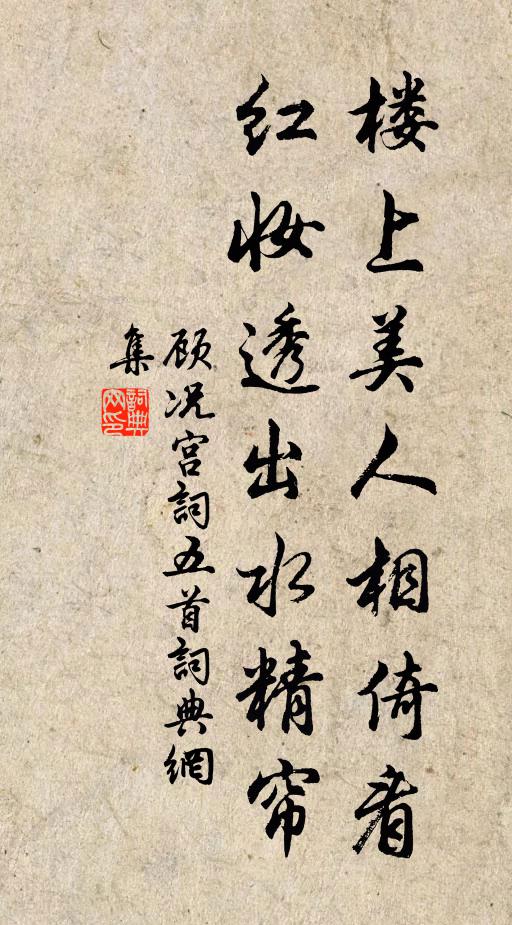 楼上美人相倚看
红妆透出水精帘
顾况宫詞五首詞典網
集
詞典網印